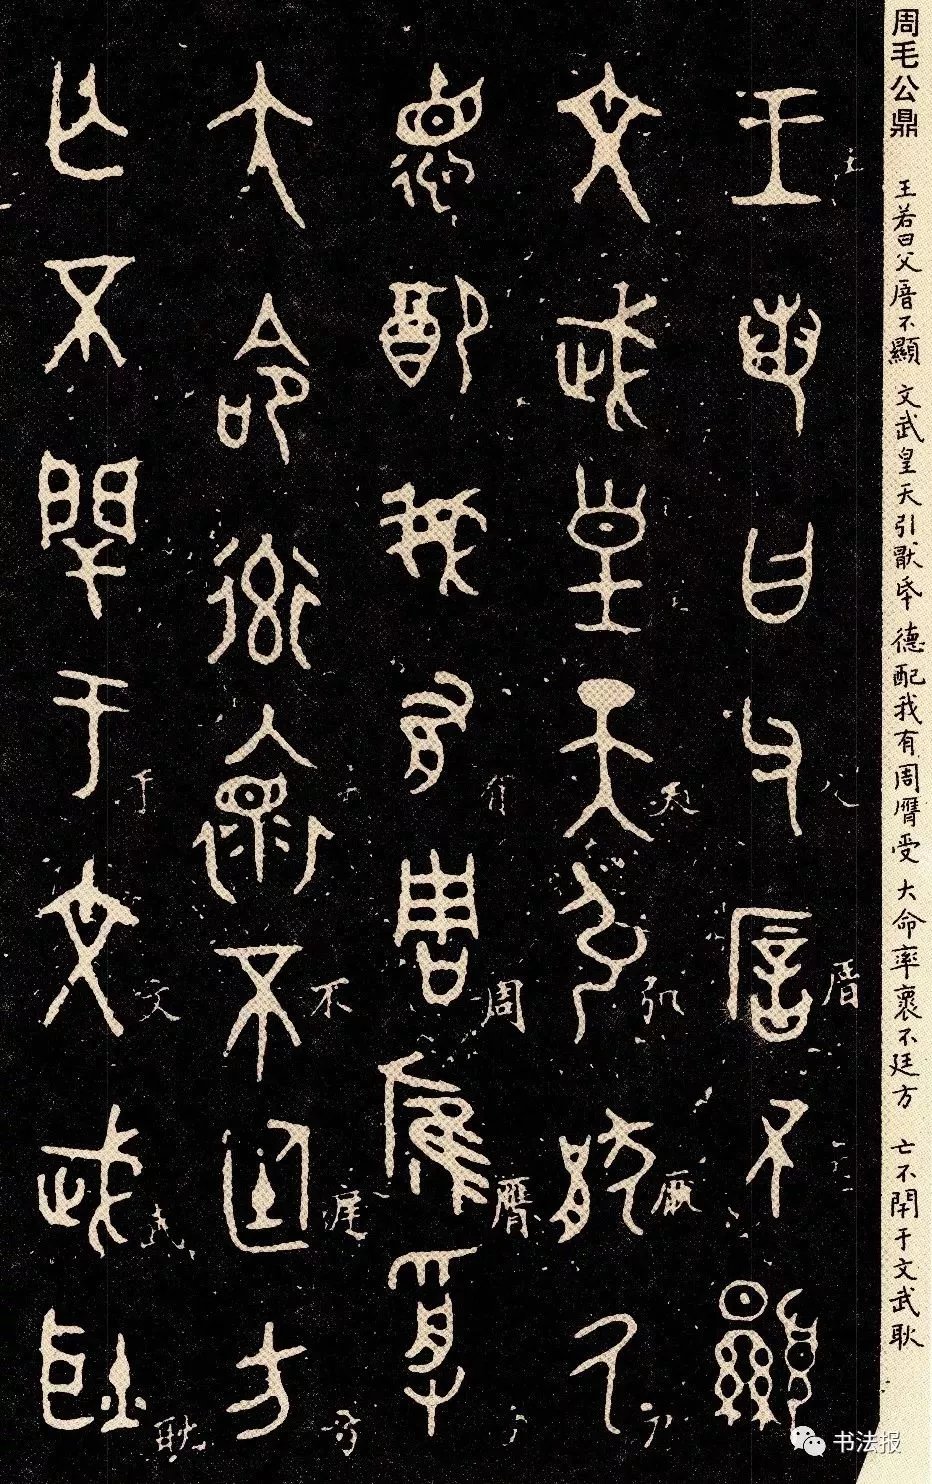 周毛公鼎 王若曰父厝不顯 文武皇天引猒氒 德配我有周膺受 大命率褱不廷方 亡不閈于文武耿
王若曰父厝不顯
文武皇天引猒氒
德配我有周膺受
大命率褱不廷方
亡不閈于文武耿
王
父
厝
天
引
厥
有
周
膺
不
于
文
武
耿
书法报